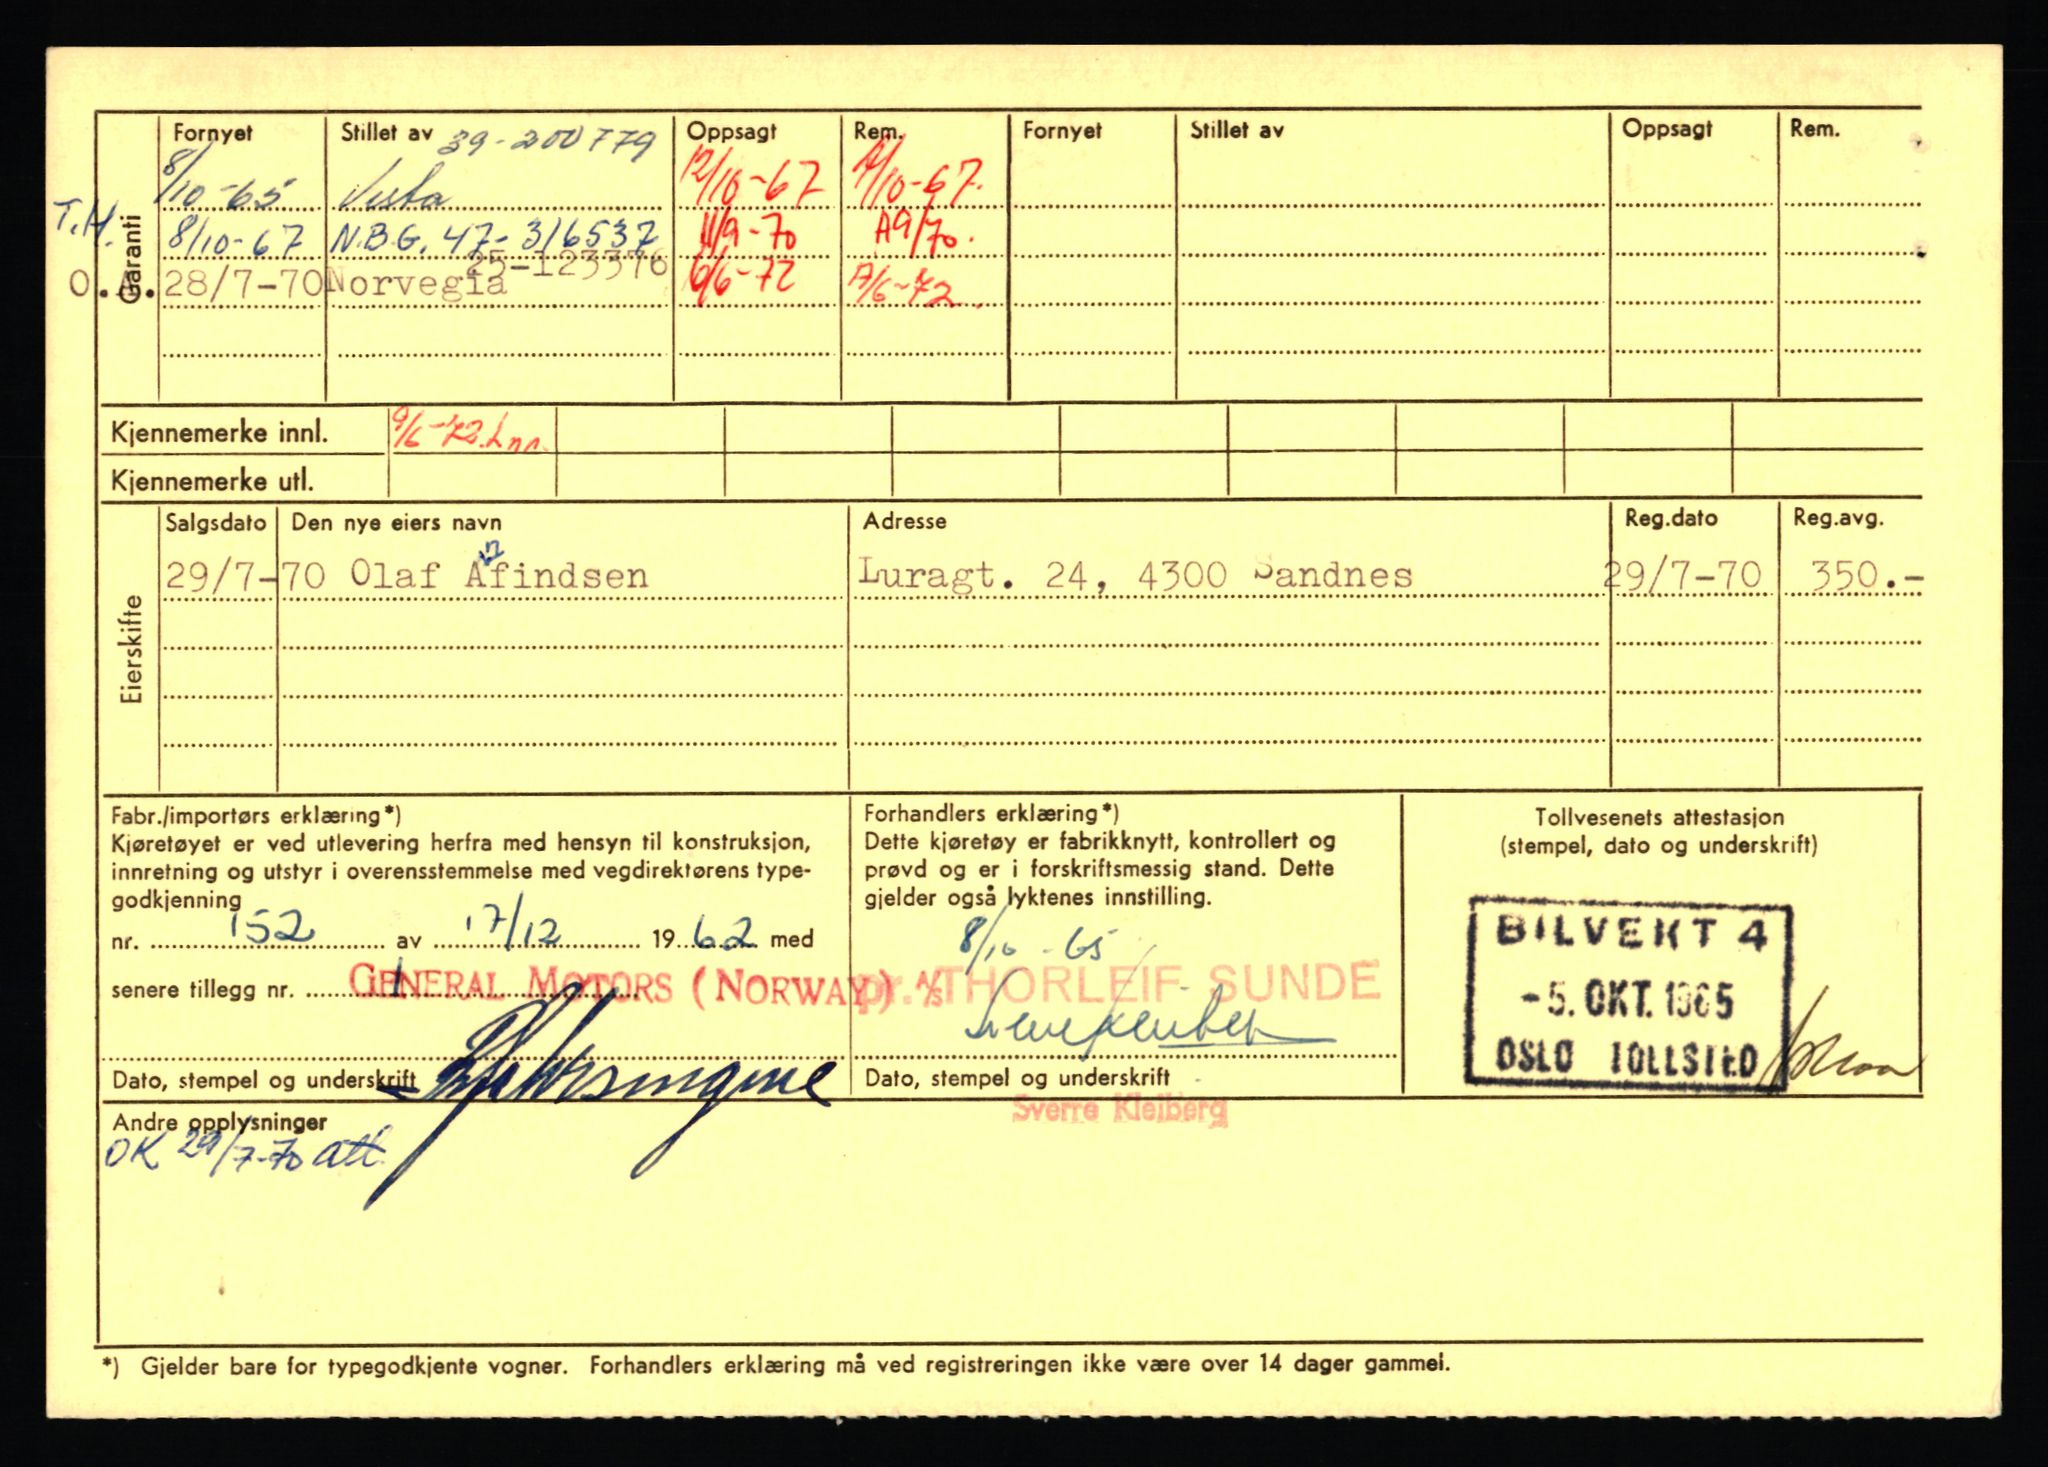 Fornyet Stillet av 39-200779 Oppsagt Rem. Fornyet Stillet av Oppsagt Rem.
8/10-65 Vesta 12/10-67 /10-67.
T.H. 8/10-67 N.B.G. 47-316537 11/9-70 A9/70.
25-123376
O.A. 28/7-70 Norvegia 6/6-72 /6-72.
Garanti
Kjennemerke innl. 9/6-72.
Kjennemerke utl.
Eierskifte
Salgsdato Den nye eiers navn Adresse Reg.dato Reg.avg.
29/7-70 Olaf Afindsen Luragt. 24, 4300 Sandnes 29/7-70 350.-
Fabr./importørs erklæring*)
Kjøretøyet er ved utlevering herfra med hensyn til konstruksjon,
innretning og utstyr i overensstemmelse med vegdirektørens type-
godkjenning
nr. 152 av 17/12 1962 med
senere tillegg nr. 1
GENERAL MOTORS (NORWAY) A/S
Dato, stempel og underskrift
Forhandlers erklæring*)
Dette kjøretøy er fabrikknytt, kontrollert og
prøvd og er i forskriftsmessig stand. Dette
gjelder også lyktenes innstilling.
8/10-65
pr. THORLEIF SUNDE
Dato, stempel og underskrift
Sverre Kleiberg
Tollvesenets attestasjon
(stempel, dato og underskrift)
BILVEKT 4
-5. OKT. 1965
OSLO TOLLSTED
Andre opplysninger
OK 29/7-70 att.
*) Gjelder bare for typegodkjente vogner. Forhandlers erklæring må ved registreringen ikke være over 14 dager gammel.